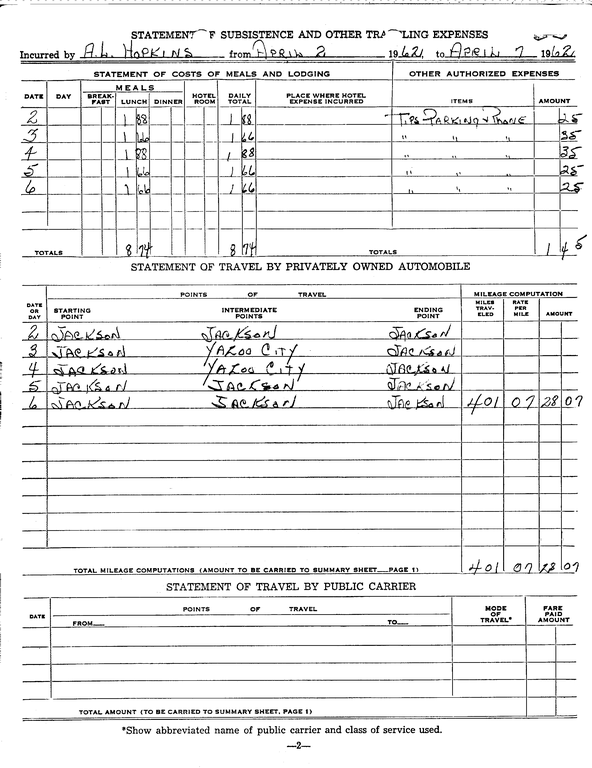 STATEMENT F SUBSISTENCE AND OTHER TRA LING EXPENSES
Incurred by A.L. HOPKINS from APRIL 2 1962 to APRIL 7 1962
STATEMENT OF COSTS OF MEALS AND LODGING OTHER AUTHORIZED EXPENSES
DATE DAY MEALS BREAK-FAST LUNCH DINNER HOTEL ROOM DAILY TOTAL PLACE WHERE HOTEL EXPENSE INCURRED ITEMS AMOUNT
2 1 88 1 88 TIPS PARKING & PHONE 25
3 1 66 1 66 " " " 35
4 1 88 1 88 " " " 35
5 1 66 1 66 " " " 25
6 1 66 1 66 " " " 25
TOTALS 8 74 8 74 TOTALS 1 45
STATEMENT OF TRAVEL BY PRIVATELY OWNED AUTOMOBILE
POINTS OF TRAVEL MILEAGE COMPUTATION
DATE OR DAY STARTING POINT INTERMEDIATE POINTS ENDING POINT MILES TRAV-ELED RATE PER MILE AMOUNT
2 JACKSON JACKSON JACKSON
3 JACKSON YAZOO CITY JACKSON
4 JACKSON YAZOO CITY JACKSON
5 JACKSON JACKSON JACKSON
6 JACKSON JACKSON JACKSON 401 07 28 07
TOTAL MILEAGE COMPUTATIONS (AMOUNT TO BE CARRIED TO SUMMARY SHEET PAGE 1) 401 07 28 07
STATEMENT OF TRAVEL BY PUBLIC CARRIER
DATE POINTS OF TRAVEL MODE OF TRAVEL* FARE PAID AMOUNT
FROM TO
TOTAL AMOUNT (TO BE CARRIED TO SUMMARY SHEET, PAGE 1)
*Show abbreviated name of public carrier and class of service used.
—2—